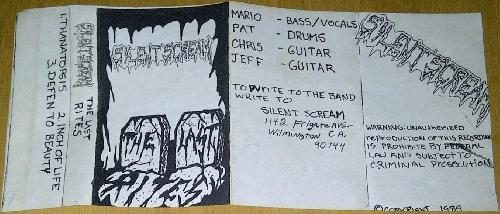 1. THANATOPSIS 2. INCH OF LIFE
3. DEFEN TO BEAUTY
SILENT SCREAM
THE LAST
RITES
SILENT SCREAM
THE LAST
MARIO - BASS/VOCALS
PAT - DRUMS
CHRIS - GUITAR
JEFF - GUITAR
TO WRITE TO THE BAND
WRITE TO
SILENT SCREAM
1142 Frigate Ave.
Wilmington CA.
90744
SILENT SCREAM
WARNING: UNAUTHORIZED
REPRODUCTION OF THIS RECORDING
IS PROHIBITE BY FEDERAL
LAW AND SUBJECT TO
CRIMINAL PROSECUTION
© COPYRIGHT 1989